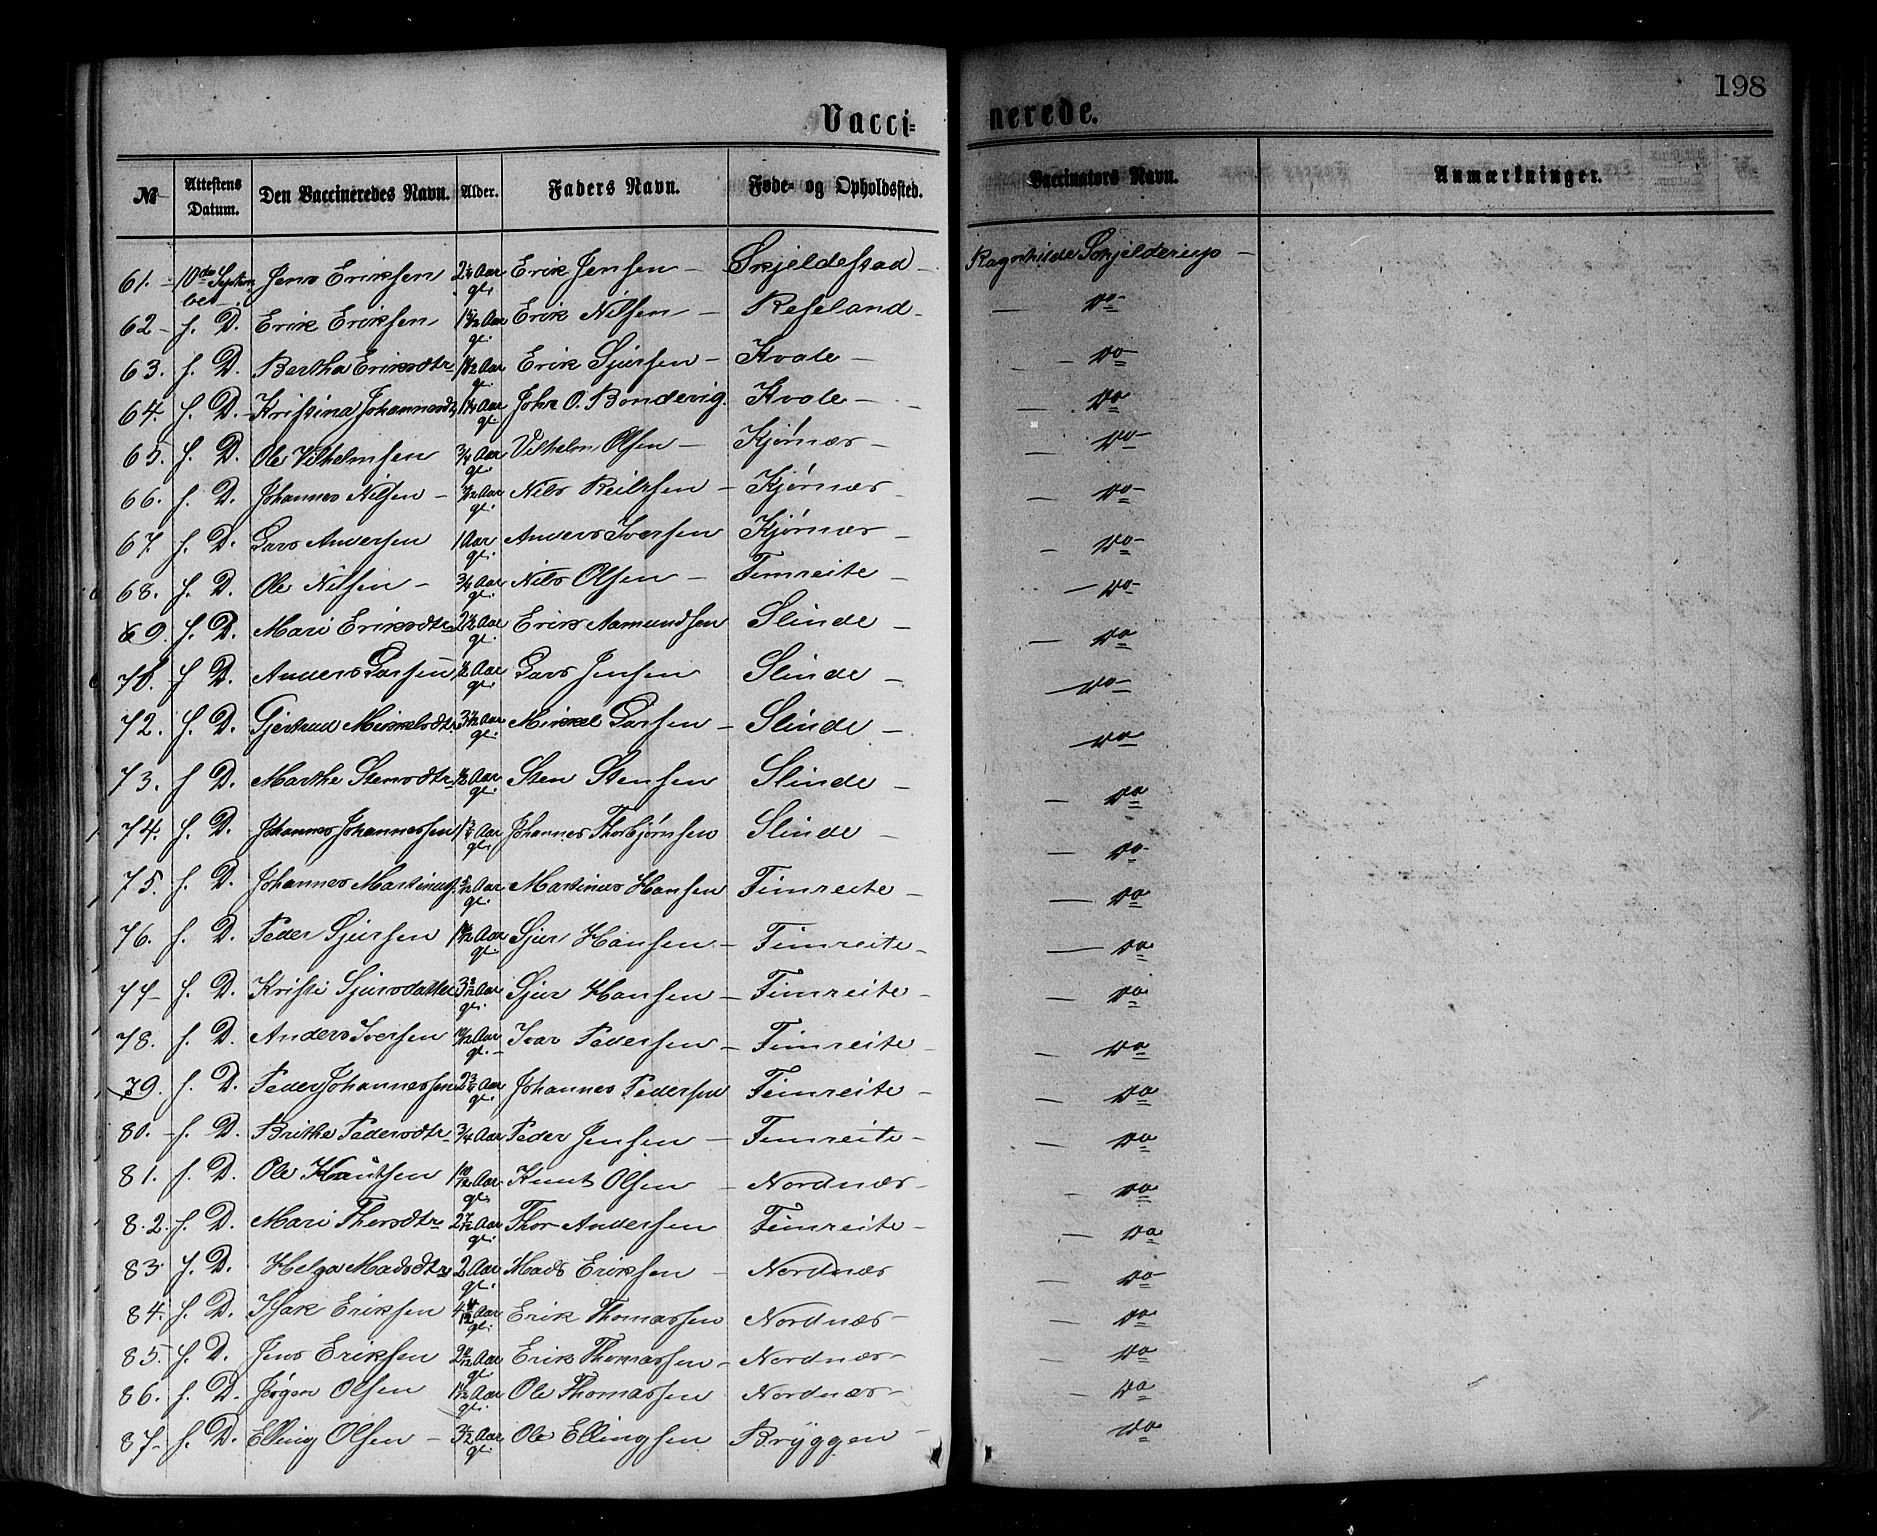 198
Vaccinerede.
№ Attestens Datum. Den Vaccineredes Navn. Alder. Faders Navn. Føde- og Opholdssted. Vaccinators Navn. Anmærkninger.
61. 10de September Jens Eriksen Aar gl. Erik Jensen Skjeldestad Ragnhilde Skjelderup
62 s. D. Erik Eriksen Aar gl. Erik Nilsen Refeland do
63. s. D. Bertha Eriksdtr Aar gl. Erik Sjursen Kvale do
64. s. D. Kristina Johannesdt Aar gl. Joh. O. Bondevig. Kvale do
65. s. D. Ole Vilhelmsen 3/4 Aar gl. Vilhelm Olsen Kjørnæs do
66. s. D. Johannes Nilsen Aar gl. Nils Kjørnæs do
67. s. D. Lars Andersen 1 Aar gl. Anders Iversen Kjørnæs do
68. s. D. Ole Nilsen 3/4 Aar gl. Nils Olsen Timreite do
69. s. D. Mari Eriksdtr Aar gl. Erik Aamundsen Slinde do
s. D. Anders Larsen Aar gl. Lars Jensen Slinde do
72. s. D. Gjertrud Mikkelsdtr. Aar gl. Mikkel Larsen Slinde do
73. s. D. Marthe Stensdtr Aar gl. Sten Stensen Slinde do
74. s. D. Johannes Johannessen Aar gl. Johannes Thorbjørnsen Slinde do
75. s. D. Johannes Martinus. Aar gl. Martinus Hansen Timreite do
76. s. D. Peder Sjursen Aar gl. Sjur Hansen Timreite do
77 s. D. Kristi Sjursdatter Aar gl. Sjur Hansen Timreite do
78. s. D. Anders Iversen Aar gl. Ivar Pedersen Timreite do
79. s. D. Peder Johannessen Aar gl. Johannes Pedersen Timreite do
80. s. D. Brithe Pedersdtr. 3/4 Aar Peder Jensen Timreite do
81. s. D. Ole Knutsen 1 10/12 Aar gl. Knut Olsen Nordnæs do
82. s. D. Mari Thorsdtr. 2 7/12 Aar gl. Thor Andersen Timreite do
83. s. D. Helga Madsdtr 2 Aar gl. Mads Eriksen Nordnæs do
84. s. D. Isak Eriksen Aar gl. Erik Thomassen Nordnæs do
85. s. D. Jens Eriksen Aar gl. Erik Thomassen Nordnæs do
86. s. D. Jørgen Olsen Aar gl. Ole Thomassen Nordnæs do
87 s. D. Elling Olsen Aar gl. Ole Ellingsen Bryggen do